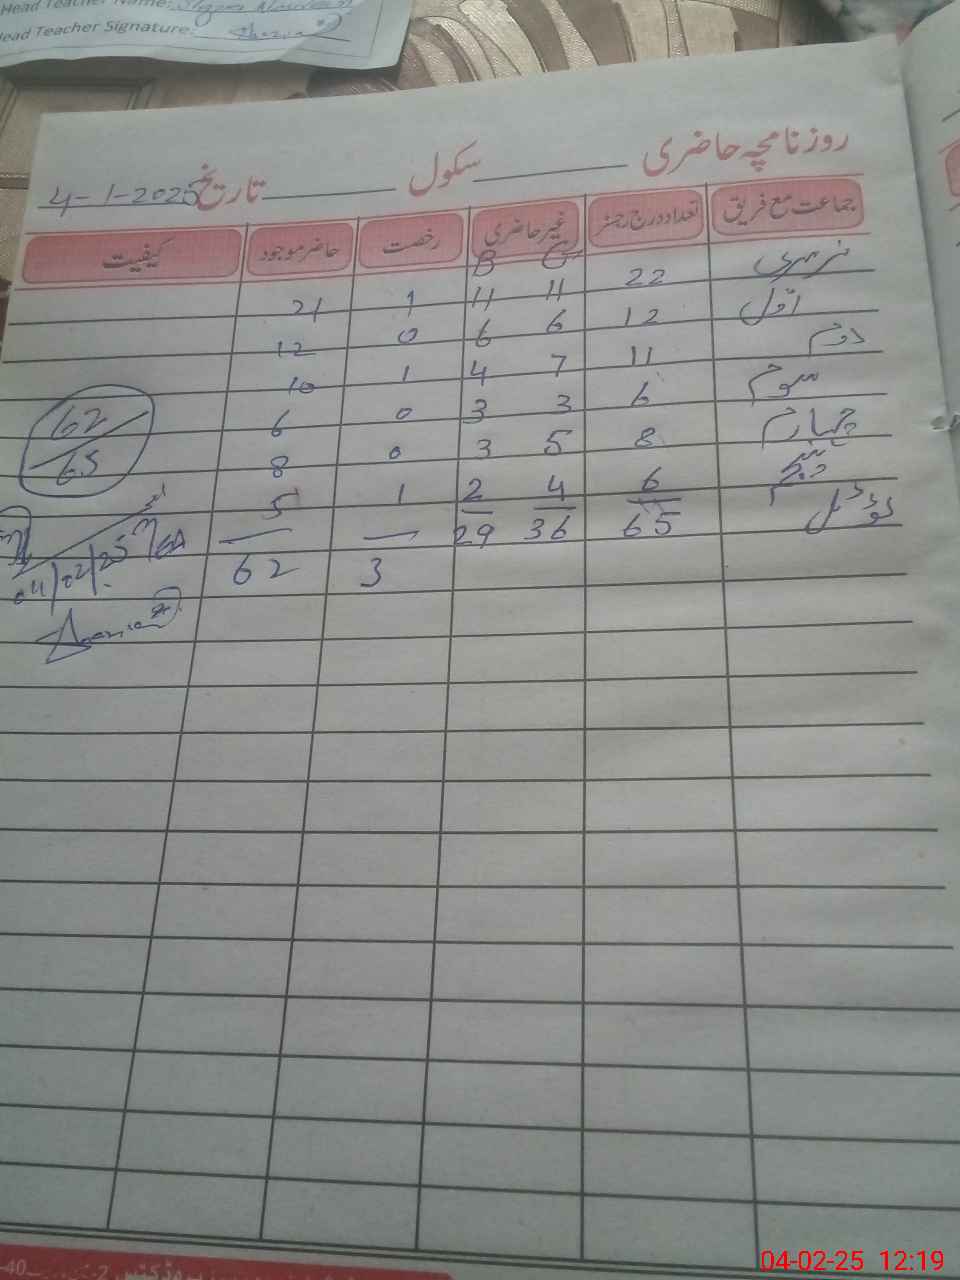 Head Teacher Name:
Head Teacher Signature:
روزنامچہ حاضری ـــــــــ سکول ـــــــــ تاریخ 4-1-2025
جماعت مع فریق تعداد درج رجسٹر غیر حاضری رخصت حاضر موجود کیفیت
G B
نرسری 22 11 11 1 21
اوّل 12 6 6 0 12
دوم 11 7 4 1 10
سوم 6 3 3 0 6
چہارم 8 5 3 0 8
پنجم 6 4 2 1 5
ٹوٹل 65 36 29
3 62
62
65
04/02/25
-40
04-02-25 12:19